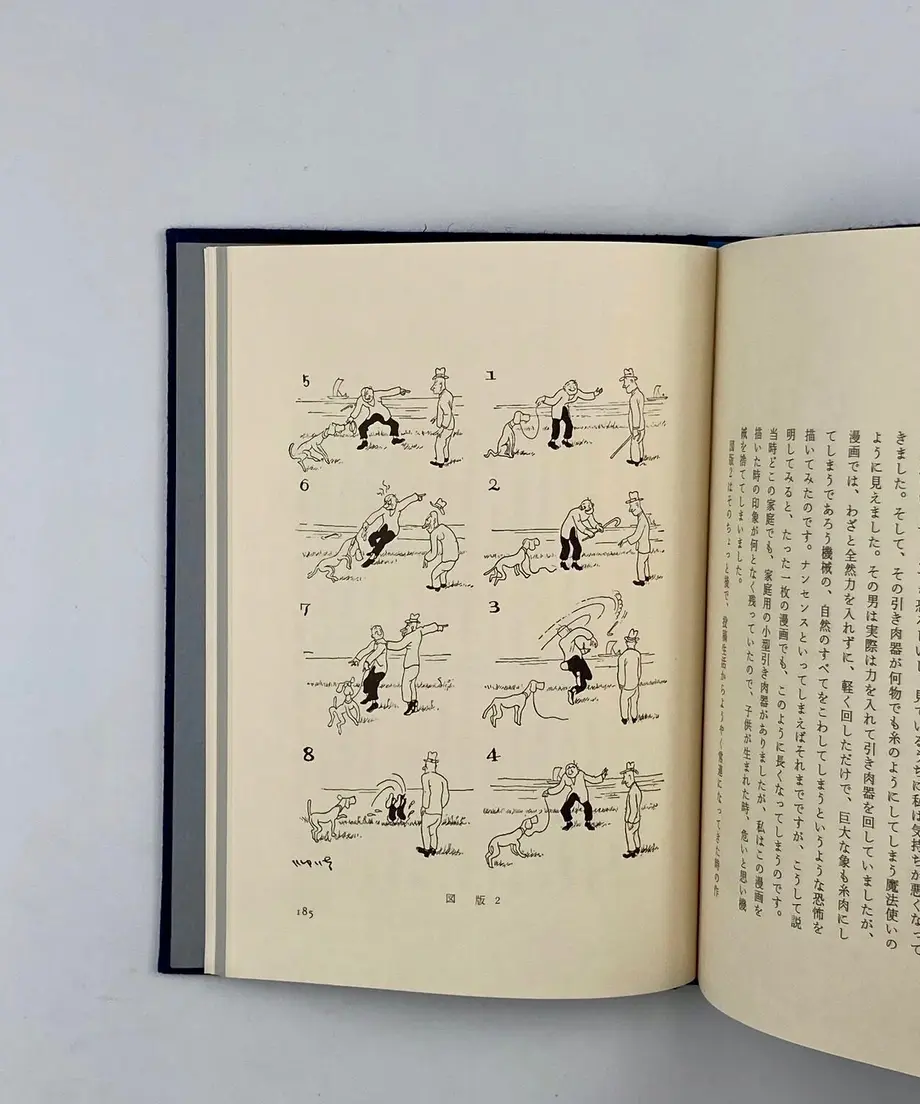 見ているうちに私は気持ちが悪くなって
きました。そして、その引き肉器が何物でも糸のようにしてしまう魔法使いの
ように見えました。その男は実際は力を入れて引き肉器を回していましたが、
漫画では、わざと全然力を入れずに、軽く回しただけで、巨大な象も糸肉にし
てしまうであろう機械の、自然のすべてをこわしてしまうというような恐怖を
描いてみたのです。ナンセンスといってしまえばそれまでですが、こうして説
明してみると、たった一枚の漫画でも、このように長くなってしまうのです。
当時どこの家庭でも、家庭用の小型引き肉器がありましたが、私はこの漫画を
描いた時の印象が何となく残っていたので、子供が生まれた時、危いと思い機
械を捨ててしまいました。
図版2はそのちょっと後で、投稿生活からようやく常連になってきた時の作
1
2
3
4
5
6
7
8
図 版 2
185